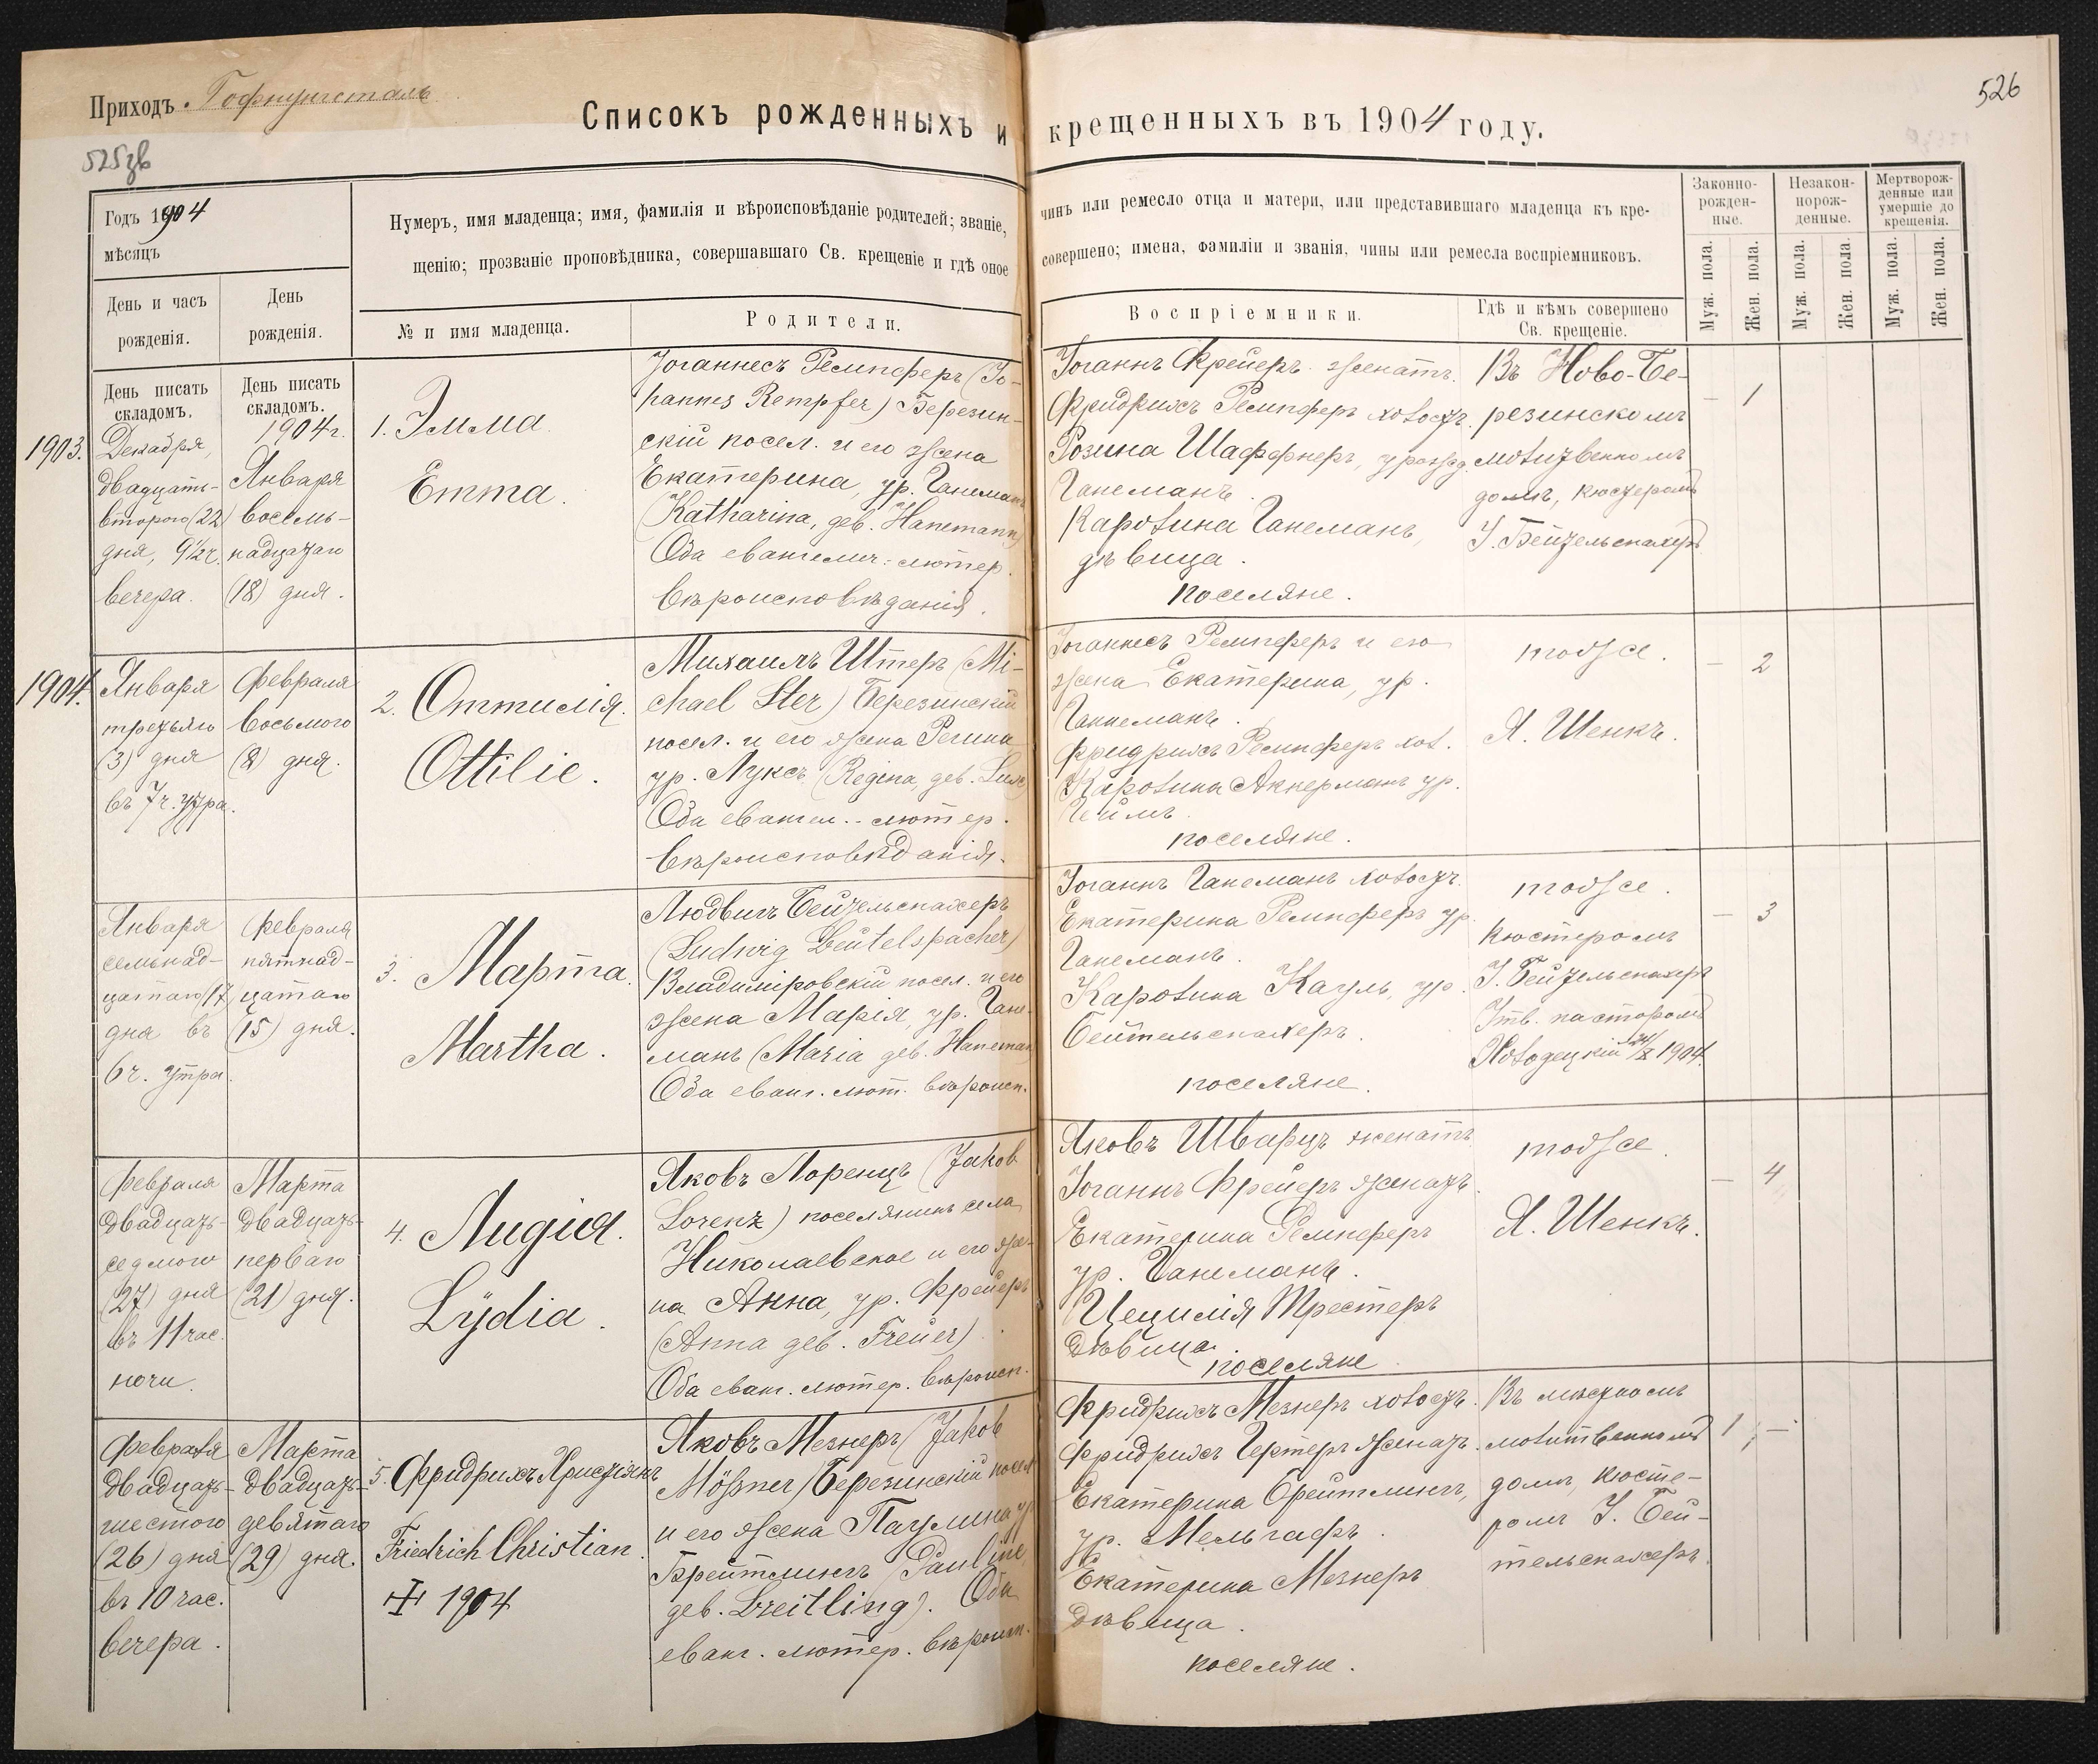 Приходъ Гофнунгсталь
525зв
526
Списокъ рожденныхъ и крещенныхъ въ 1904 году.
Годъ 1904
мѣсяцъ
День и часъ
рожденія.
День
рожденія.
Нумеръ, имя младенца; имя, фамилія и вѣроисповѣданіе родителей; званіе,
щенію; прозваніе проповѣдника, совершавшаго Св. крещеніе и гдѣ оное
№ и имя младенца.
Родители.
чинъ или ремесло отца и матери, или представившаго младенца къ кре-
совершено; имена, фамиліи и званія, чины или ремесла воспріемниковъ.
Воспріемники.
Гдѣ и кѣмъ совершено
Св. крещеніе.
Законно-
рожден-
ные.
Незакон-
норож-
денные.
Мертворож-
денные или
умершіе до
крещенія.
Муж. пола.
Жен. пола.
Муж. пола.
Жен. пола.
Муж. пола.
Жен. пола.
День писать
складомъ.
День писать
складомъ.
1903.
Декабря,
двадцать-
второго (22)
дня, 9½ч.
вечера.
1904г.
Января
восемь-
надцатаго
(18) дня.
1. Эмма.
Emma.
Іоганнесъ Ремпферъ (Jo-
hannes Rempfer) Березин-
скій посел. и его жена
Екатерина, ур. Ганеманъ
(Katharina, geb. Hanemann)
Оба евангелич.-лютер.
вѣроисповѣданія.
Іоганнъ Фрейеръ женатъ.
Фридрихъ Ремпферъ холостъ.
Розина Шаффнеръ, урожд.
Ганеманъ.
Каролина Ганеманъ,
дѣвица.
поселяне.
Въ Ново-Бе-
резинскомъ
молитвенномъ
домѣ, кюстеромъ
І. Бейтельспахеръ
— 1
1904.
Января
третьяго
(3) дня
въ 7ч. утра.
Февраля
восьмого
(8) дня.
2. Оттилія.
Ottilie.
Михаилъ Штеръ (Mi-
chael Ster) Березинскій
посел. и его жена Регина
ур. Луксъ (Regina, geb. Lux)
Оба евангел.-лютер.
вѣроисповѣданія.
Іоганнесъ Ремпферъ и его
жена Екатерина, ур.
Ганнеманъ.
Фридрихъ Ремпферъ хол.
Каролина Аккерманъ ур.
Геймъ
поселяне.
тоже.
Я. Шенкъ.
— 2
Января
семьнад-
цатаго (17)
дня въ
6ч. утра.
Февраля
пятнад-
цатаго
(15) дня.
3. Марта.
Martha.
Людвигъ Бейтельспахеръ
(Ludwig Beutelspacher)
Владиміровскій посел. и его
жена Марія, ур. Гане-
манъ (Maria geb. Haneman
Оба еванг. лют. вѣроисп.
Іоганнъ Ганеманъ холостъ.
Екатерина Ремпферъ ур.
Ганеманъ.
Каролина Кауль, ур.
Бейтельспахеръ.
поселяне.
тоже.
Кюстеромъ
І. Бейтельспахеръ
Утв. пасторомъ
1904.
— 3
Февраля
двадцать-
седмого
(27) дня
въ 11 час.
ночи.
Марта
двадцать-
перваго
(21) дня.
4. Лидія.
Lydia.
Яковъ Лоренцъ (Jakob
Lorenz) поселянинъ села
Николаевское и его же-
на Анна, ур. Фрейеръ
(Anna geb. Freuer).
Оба еванг. лютер. вѣроисп.
Яковъ Шварцъ женатъ
Іоганнъ Фрейеръ женатъ.
Екатерина Ремпферъ
ур. Ганеманъ.
Цецилія Трестеръ
дѣвица.
поселяне.
тоже.
Я. Шенкъ.
— 4
Февраля
двадцать-
шестого
(26) дня
въ 10 час.
вечера.
Марта
двадцать-
девятаго
(29) дня.
5. Фридрихъ Христіянъ
Friedrich Christian.
1904
Яковъ Мезнеръ (Jakob
Mößner) Березинскій посел
и его жена Паулина у
Брейтлингъ (Pauline
geb. Breitling). Оба
еванг. лютер. вѣроисп.
Фридрихъ Мезнеръ холостъ.
Фридрихъ Гертеръ женатъ.
Екатерина Брейтлингъ,
ур. Мельгафъ.
Екатерина Мезнеръ
дѣвица.
поселяне.
Въ мѣстномъ
молитвенномъ
домѣ, кюсте-
ромъ І. Бей-
тельспахеръ.
1 ; —